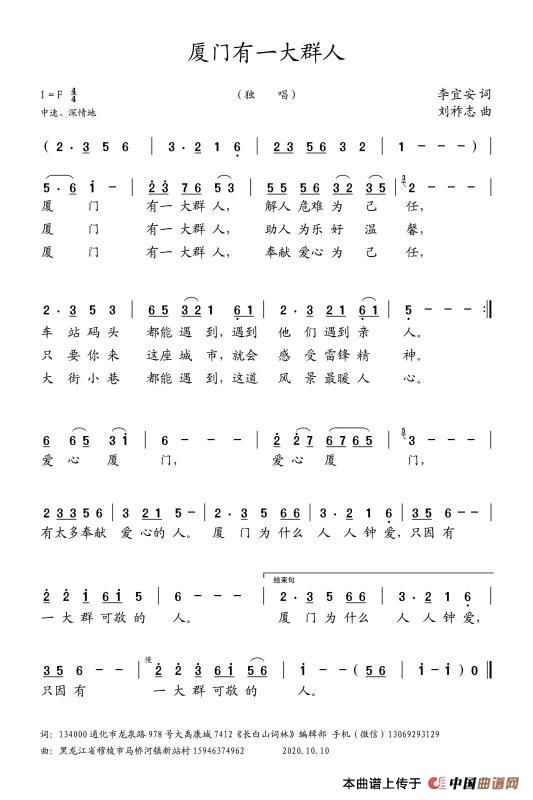 厦门有一大群人
1=F 4/4 （独 唱） 李宜安 词
中速、深情地 刘祚志 曲
( 2· 3 5 6 | 3· 2 1 6 | 2 3 5 6 3 2 | 1 - - - ) |
5· 6 i - | 2 3 7 6 5 3 | 5 5 5 6 3 2 3 5 | 3 2 - - - |
厦 门 有一 大群 人， 解人 危难 为 己 任，
厦 门 有一 大群 人， 助人 为乐 好 温 馨，
厦 门 有一 大群 人， 奉献 爱心 为 己 任，
2· 3 5 3 | 6 5 3 2 1 6 1 | 2· 3 2 1 6 1 | 5 - - - :|
车 站 码 头 都能 遇 到，遇到 他 们 遇到 亲 人。
只 要 你 来 这座 城 市，就会 感 受 雷锋 精 神。
大 街 小 巷 都能 遇 到，这道 风 景 最暖 人 心。
6 6 5 3 i | 6 - - - | 2 2 7 6 7 6 5 | 5 3 - - - |
爱 心 厦 门， 爱 心 厦 门，
2 3 3 5 6 | 3 2 1 5 - | 2· 3 5 6 6 | 3· 2 1 6 | 3 5 6 - - |
有太多奉献 爱 心的 人。 厦 门 为 什么 人 人 钟 爱，只因 有
结束句
2 2 i 6 i 5 | 6 - - - | 2· 3 5 6 6 | 3· 2 1 6 |
一 大 群 可敬 的 人。 厦 门 为什么 人 人 钟 爱，
慢
3 5 6 - - | 2 2 3 6 i 5 6 | i - - - | i - - ( 5 6 | i - i ) 0 ‖
只因 有 一 大 群 可敬 的 人。
词：134000 通化市龙泉路 978 号大禹康城 7412《长白山词林》编辑部 手机（微信）13069293129
曲：黑龙江省穆棱市马桥河镇新站村 15946374962 2020.10.10
本曲谱上传于 中国曲谱网